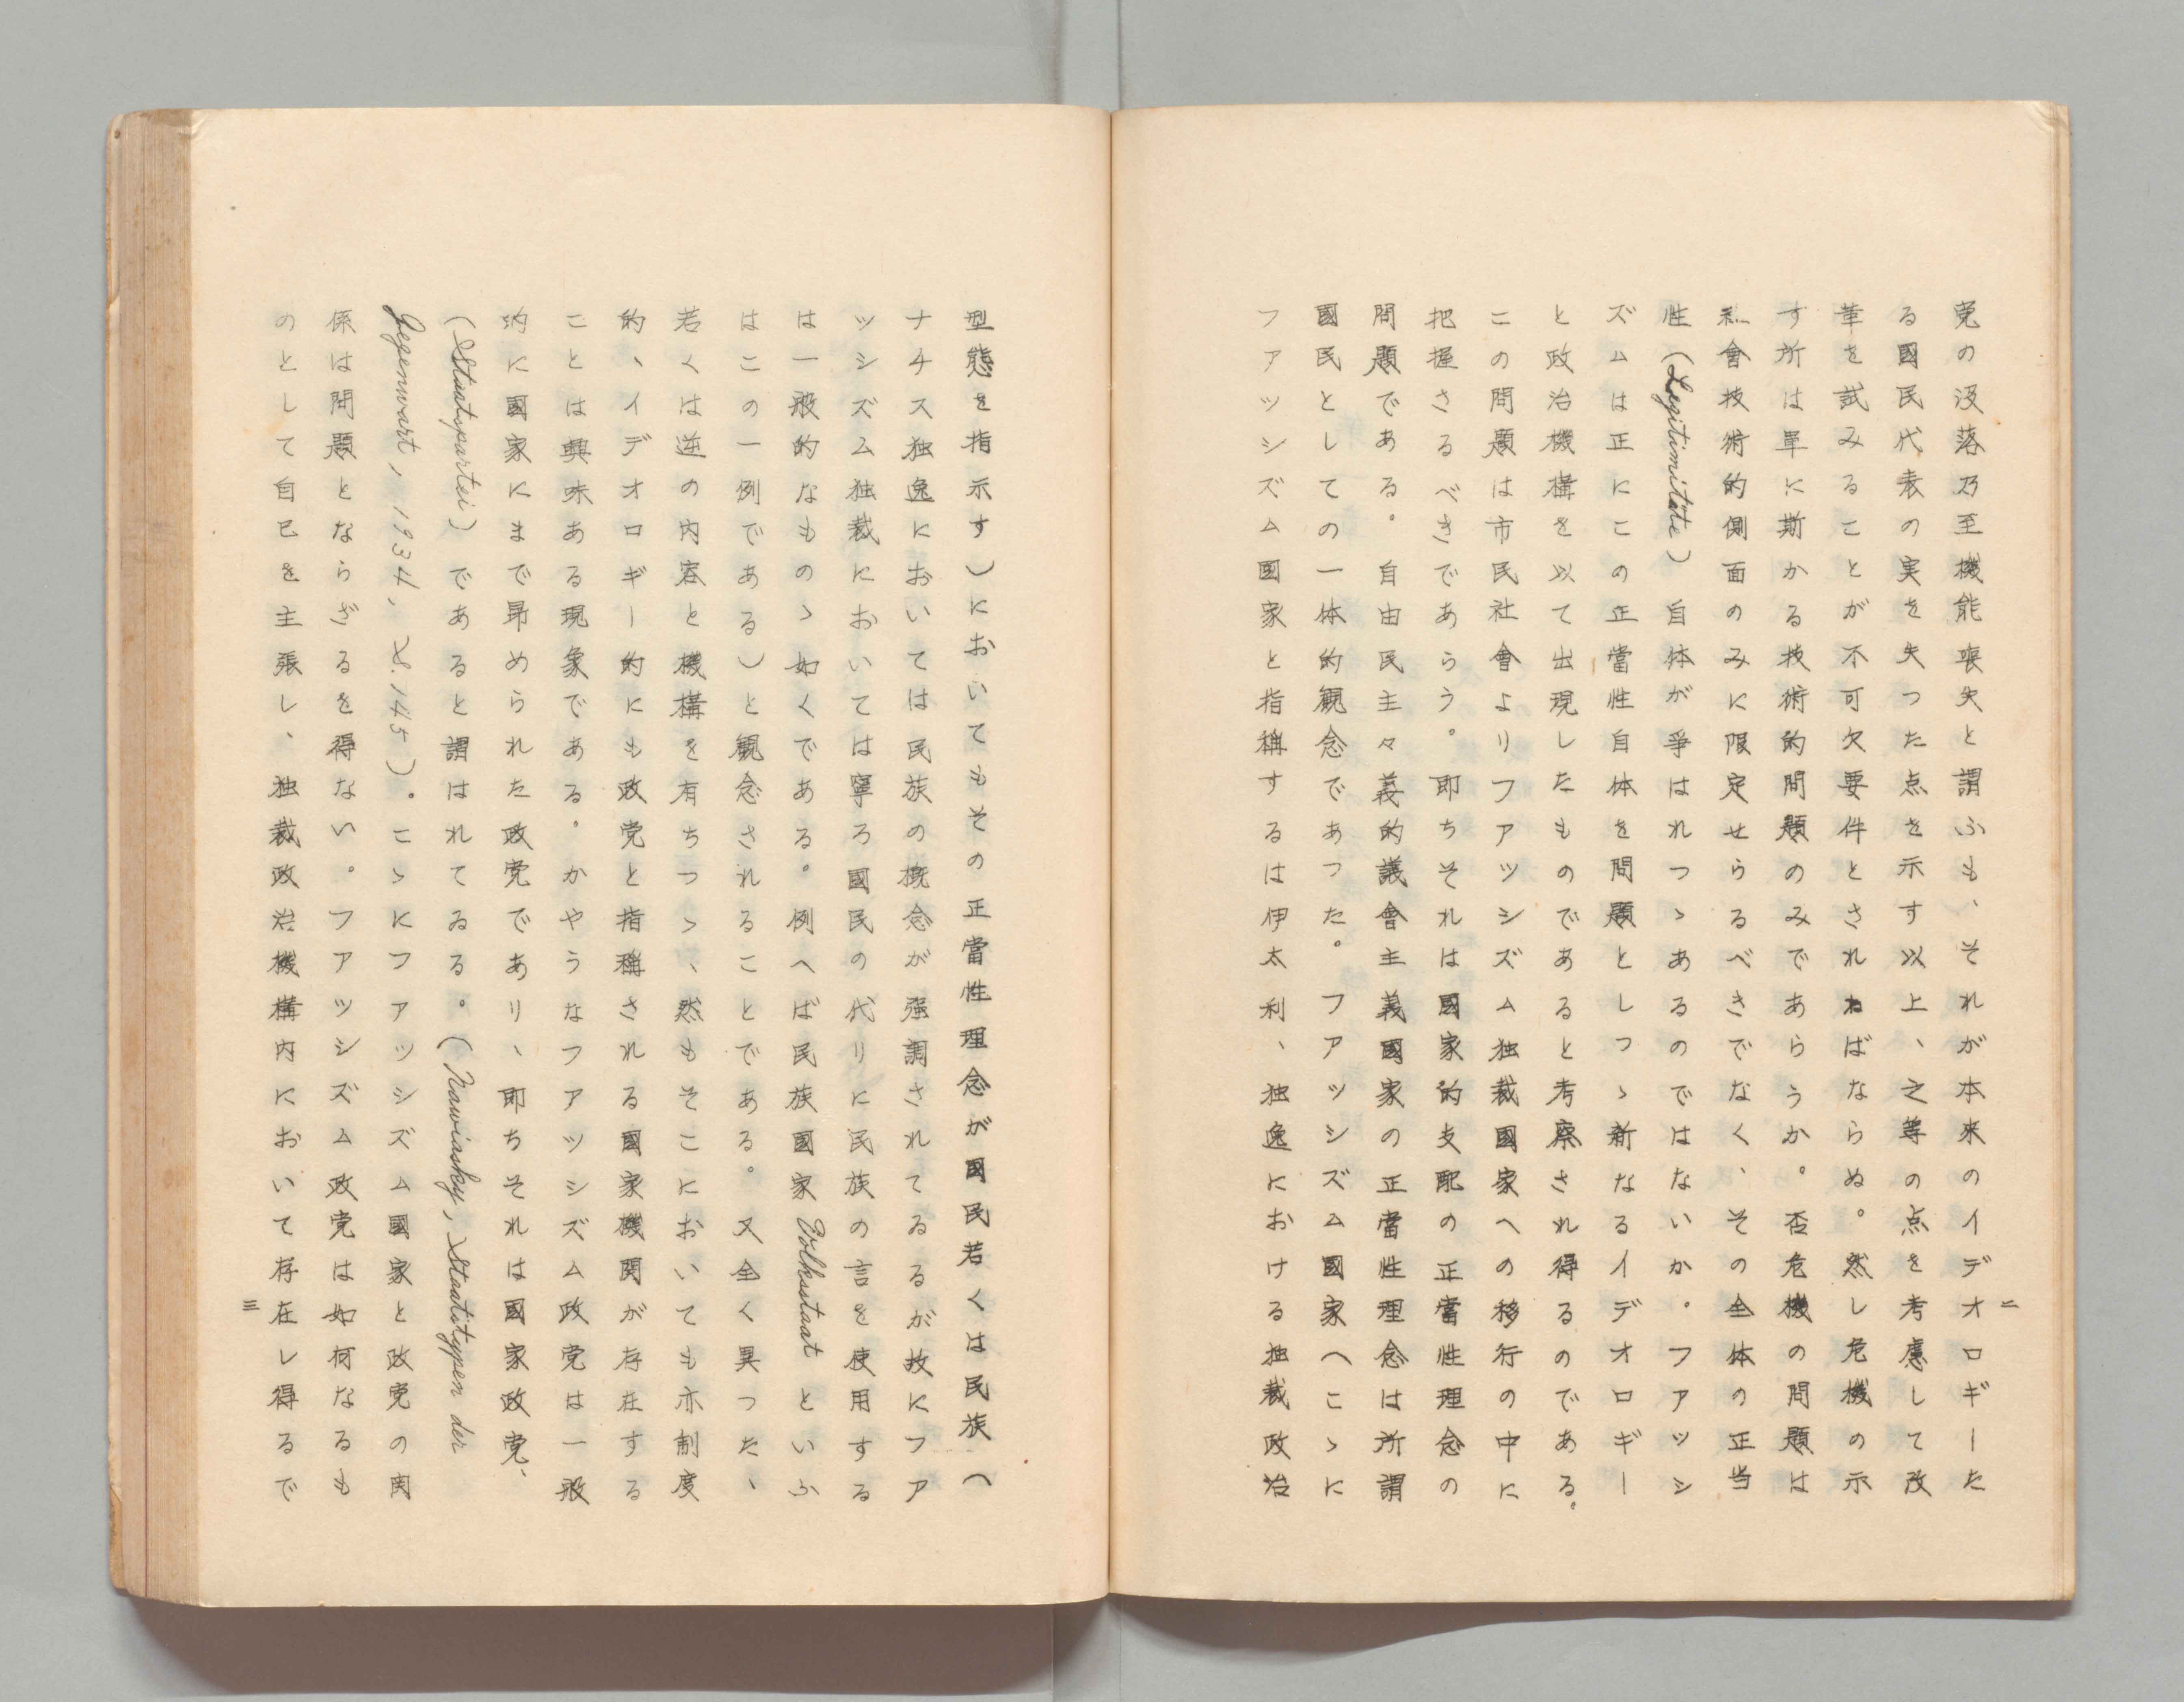 党の没落乃至機能喪失と謂ふも、それが本来のイデオロギーた
る國民代表の実を失つた点を示す以上、之等の点を考慮して改
革を試みることが不可欠要件とされねばならぬ。然し危機の示
す所は単に斯かる技術的問題のみであらうか。否危機の問題は
社會技術的側面のみに限定せらるべきでなく、その全体の正当
性（Legitimitäte）自体が爭はれつゝあるのではないか。ファッシ
ズムは正にこの正當性自体を問題としつゝ新なるイデオロギー
と政治機構を以て出現したものであると考察され得るのである。
この問題は市民社會よりファッシズム独裁國家への移行の中に
把握さるべきであらう。即ちそれは國家的支配の正當性理念の
問題である。自由民主々義的議會主義國家の正當性理念は所謂
國民としての一体的観念であつた。ファッシズム國家（こゝに
ファッシズム国家と指稱するは伊太利、独逸における独裁政治
二
型態を指示す）においてもその正當性理念が国民若くは民族（
ナチス独逸においては民族の概念が强調されてるるが故にファ
ッシズム独裁においては寧ろ國民の代りに民族の言を使用する
は一般的なものゝ如くである。例へば民族國家Volksstaatといふ
はこの一例である）と観念されることである。又全く異つた、
若くは逆の内容と機構を有ちつゝ、然もそこにおいても亦制度
的、イデオロギー的にも政党と指稱される國家機関が存在する
ことは興味ある現象である。かやうなファッシズム政党は一般
的に國家にまで昻められた政党であり、即ちそれは國家政党、
（Staatspartei）であると謂はれてゐる。（Nawiasky, Staatitypen der
Gegenwart, 1934, S.145）。こゝにファッシズム國家と政党の関
係は問題とならざるを得ない。ファッシズム政党は如何なるも
のとして自己を主張し、独裁政治機構内において存在し得るで
三